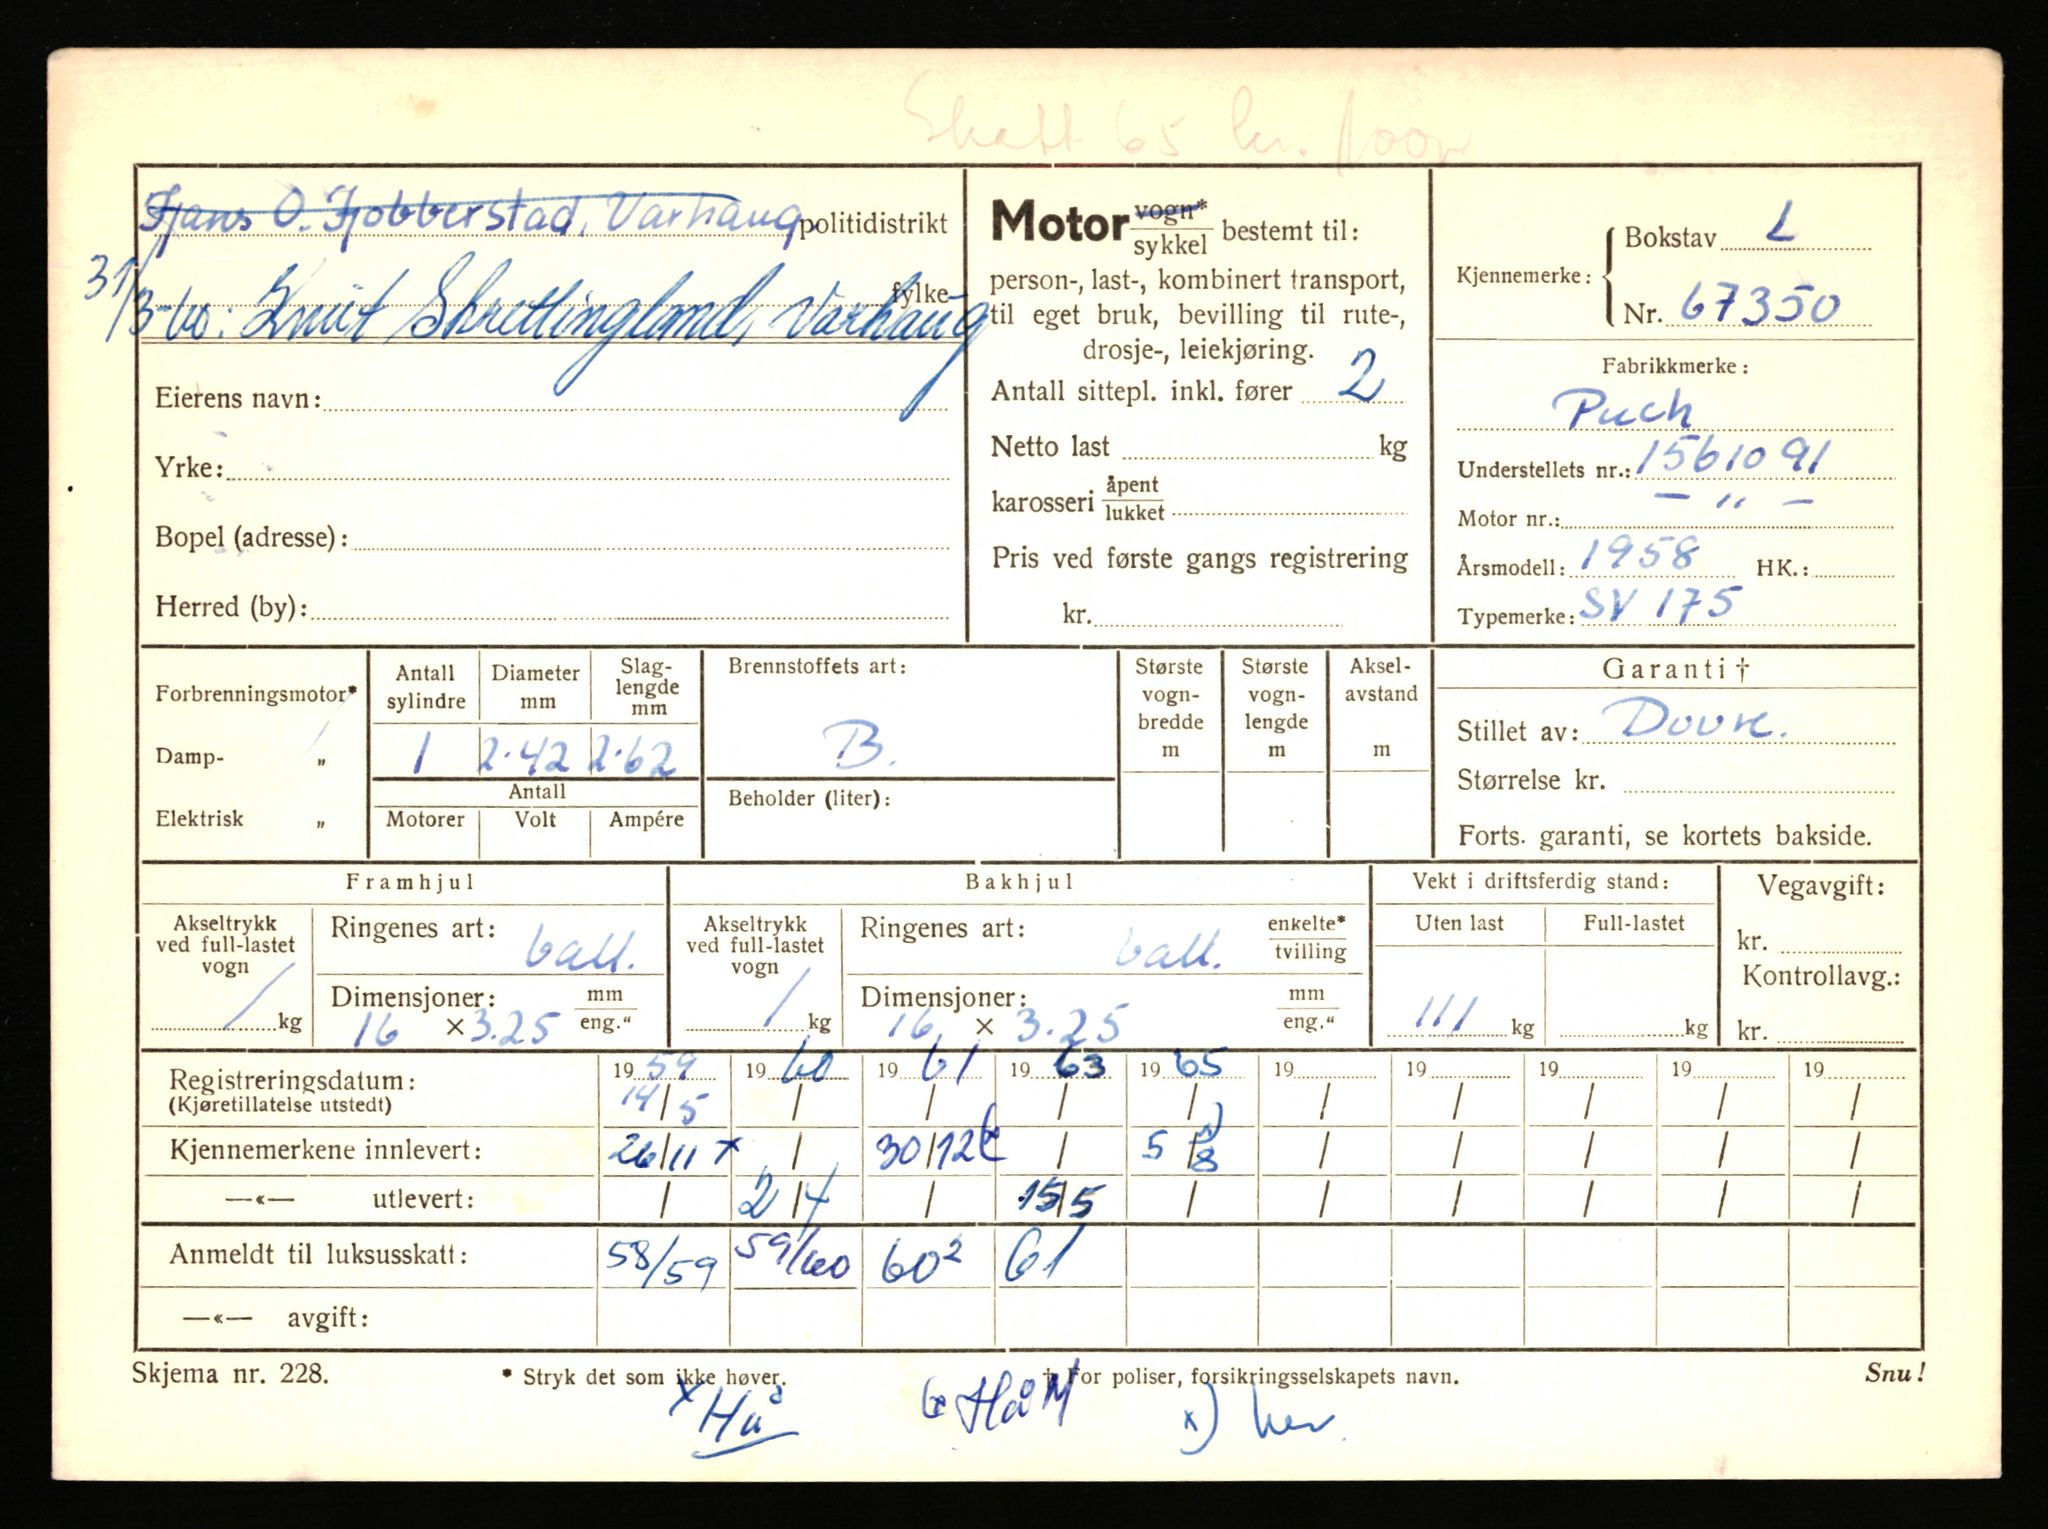 Skatt 65 kr.
Hans O. Hobberstad, Varhaug politidistrikt
31/3-60: Knut Skrettingland, Varhaug fylke
Eierens navn:
Yrke:
Bopel (adresse):
Herred (by):
Motor vogn* / sykkel bestemt til:
person-, last-, kombinert transport,
til eget bruk, bevilling til rute-,
drosje-, leiekjøring.
Antall sittepl. inkl. fører 2
Netto last kg
karosseri åpent / lukket
Pris ved første gangs registrering
kr.
Kjennemerke: Bokstav L
Nr. 67350
Fabrikkmerke:
Puch
Understellets nr.: 1561091
Motor nr.: — " —
Årsmodell: 1958 HK.:
Typemerke: SV 175
Forbrenningsmotor*
Damp- „
Elektrisk „
Antall sylindre
1
Diameter mm
2·42
Slaglengde mm
2·62
Antall
Motorer Volt Ampére
Brennstoffets art:
B.
Beholder (liter):
Største vogn-bredde m
Største vogn-lengde m
Aksel-avstand m
Garanti †
Stillet av: Dovre.
Størrelse kr.
Forts. garanti, se kortets bakside.
Framhjul
Akseltrykk ved full-lastet vogn / kg
Ringenes art: ball.
Dimensjoner: mm / eng."
16 × 3.25
Bakhjul
Akseltrykk ved full-lastet vogn / kg
Ringenes art: ball. enkelte* / tvilling
Dimensjoner: mm / eng."
16 × 3.25
Vekt i driftsferdig stand:
Uten last Full-lastet
111 kg kg
Vegavgift:
kr.
Kontrollavg.:
kr.
Registreringsdatum: 1959 1960 1961 1963 1965 19 19 19 19 19
(Kjøretillatelse utstedt) 14/5 / / / / / / / / /
Kjennemerkene innlevert: 26/11 x / 30/12 / 5/8 x) / / / / /
—«— utlevert: / 2/4 / 15/5 / / / / / /
Anmeldt til luksusskatt: 58/59 59/60 60² 61
—«— avgift:
Skjema nr. 228. * Stryk det som ikke høver. † For poliser, forsikringsselskapets navn. Snu!
x Hå HåM x) her.